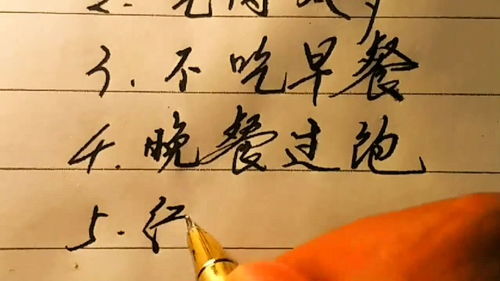 3. 不吃早餐
4. 晚餐过饱
5.